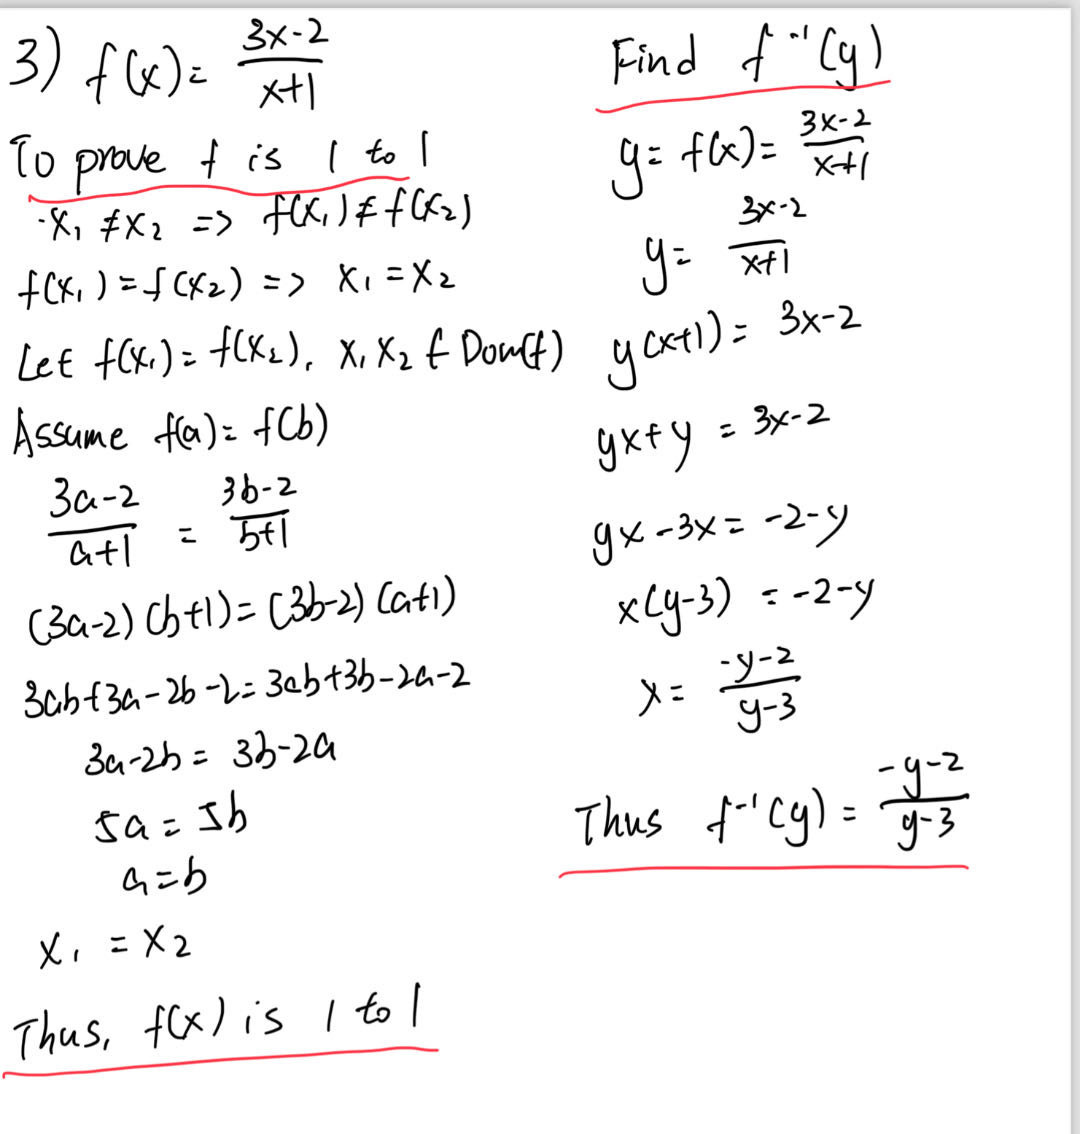 3) f(x) = (3x-2)/(x+1)
To prove f is 1 to 1
·x₁ ≠ x₂ => f(x₁) ≠ f(x₂)
f(x₁) = f(x₂) => x₁ = x₂
Let f(x₁) = f(x₂), x₁ x₂ ∈ Dom(f)
Assume f(a) = f(b)
(3a-2)/(a+1) = (3b-2)/(b+1)
(3a-2)(b+1) = (3b-2)(a+1)
3ab+3a-2b-2 = 3ab+3b-2a-2
3a-2b = 3b-2a
5a = 5b
a = b
x₁ = x₂
Thus, f(x) is 1 to 1
Find f⁻¹(y)
y = f(x) = (3x-2)/(x+1)
y = (3x-2)/(x+1)
y(x+1) = 3x-2
yx+y = 3x-2
yx-3x = -2-y
x(y-3) = -2-y
x = (-y-2)/(y-3)
Thus f⁻¹(y) = (-y-2)/(y-3)